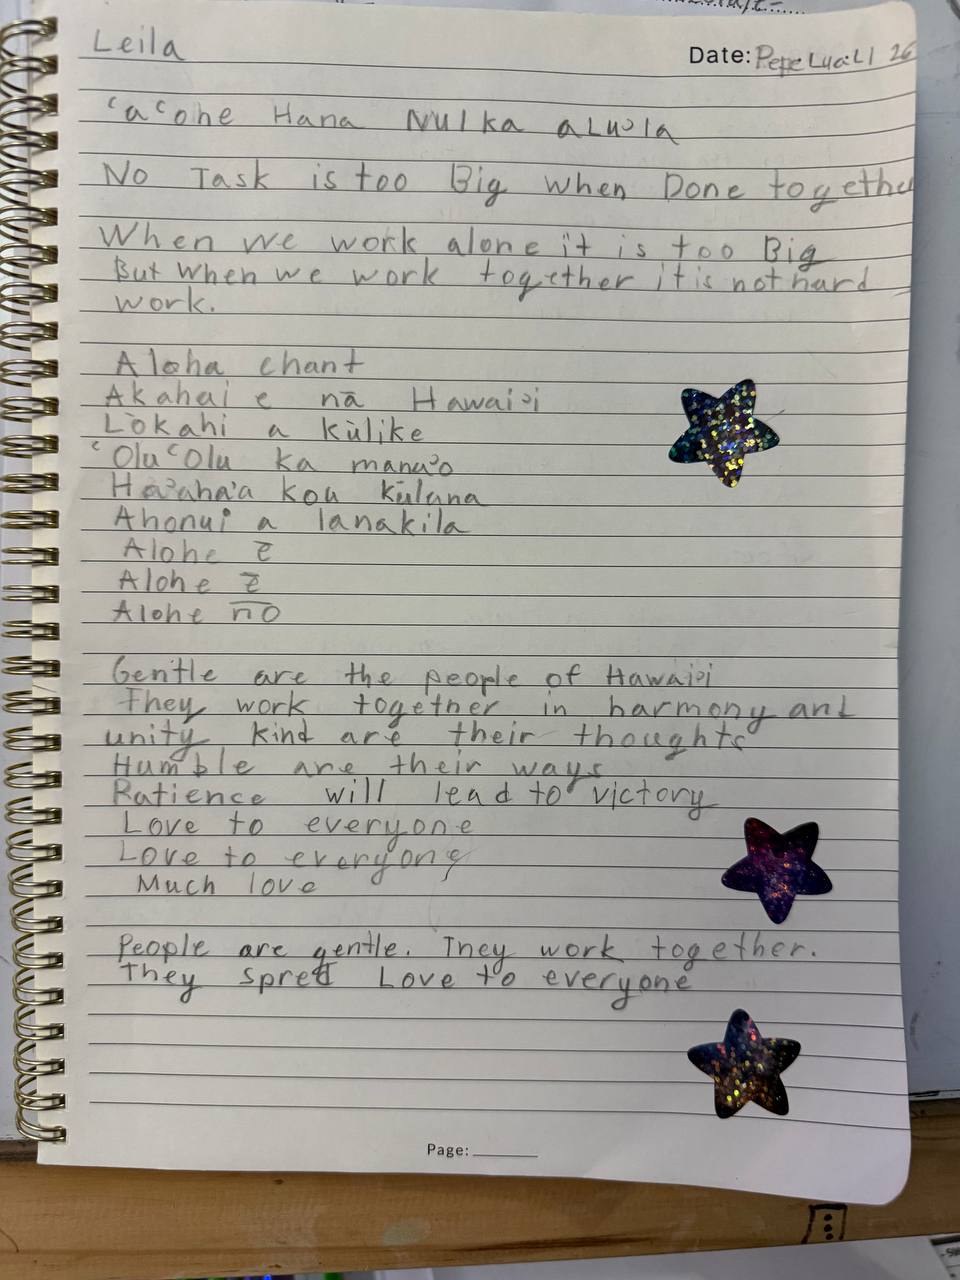 Leila
Date: PepeLuali 26
ʻaʻohe Hana NUIka aLuʾla
No Task is too Big when Done togethe
When we work alone it is too Big
But when we work together it is not hard
work.
Aloha chant
Akahai e nā Hawaiʾi
Lōkahi a kūlike
ʻOluʻOlu ka manaʾo
Haʾahaʾa kou kūlana
Ahonui a lanakila
Alohe ē
Alohe ē
Alohe nō
Gentle are the people of Hawaiʾi
They work together in harmony and
unity kind are their thoughts
Humble are their ways
Patience will lead to victory
Love to everyone
Love to everyone
Much love
People are gentle. They work together.
They spred Love to everyone
Page: